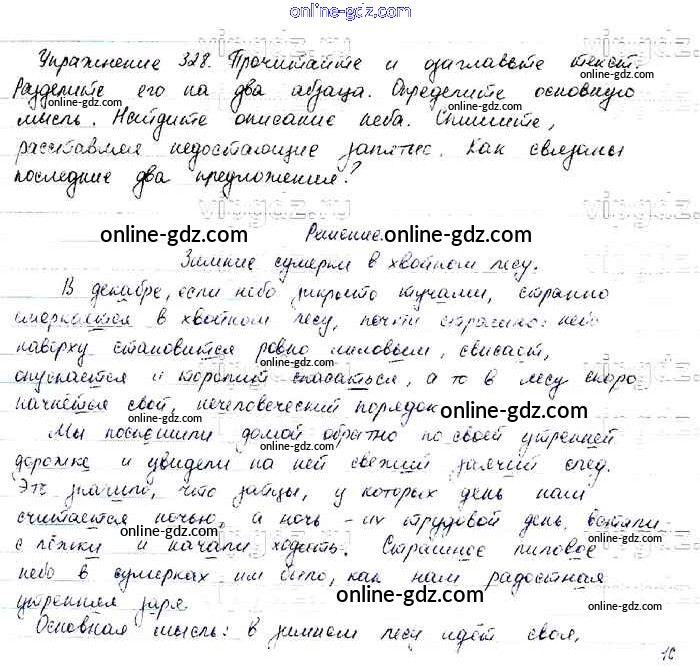 online-gdz.com
Упражнение 328. Прочитайте и озаглавьте текст.
Разделите его на два абзаца. Определите основную
мысль. Найдите описание неба. Спишите,
расставляя недостающие запятые. Как связаны
последние два предложения?
Решение.
Зимние сумерки в хвойном лесу.
В декабре, если небо закрыто тучами, странно
смеркается в хвойном лесу, почти страшно: небо
наверху становится ровно лиловым, свисает,
опускается и торопит спасаться, а то в лесу скоро
начнётся свой, нечеловеческий порядок
Мы поспешили домой обратно по своей утренней
дорожке и увидели на ней свежий заячий след.
Это значило, что зайцы, у которых день наш
считается ночью, а ночь - их трудовой день, встали
с лёжки и начали ходить. Страшное лиловое
небо в сумерках им было, как нам радостная
утренняя заря
Основная мысль: в зимнем лесу идёт своя,
16